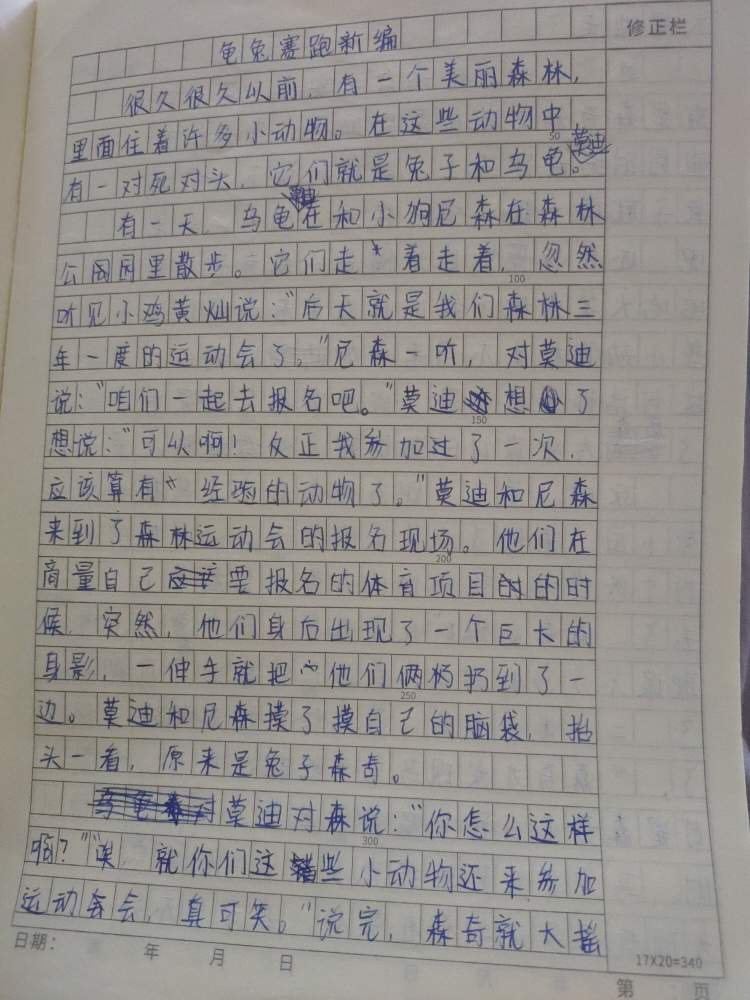 龟兔赛跑新编
修正栏
很久很久以前，有一个美丽森林，
里面住着许多小动物。在这些动物中，
50
有一对死对头，它们就是兔子和乌龟莫迪。
有一天，乌龟莫迪在和小狗尼森在森林
公园园里散步。它们走着走着，忽然
100
听见小鸡黄灿说：“后天就是我们森林三
年一度的运动会了，”尼森一听，对莫迪
说：“咱们一起去报名吧。”莫迪想了
150
想说：“可以啊！反正我参加过了一次，
应该算有经验的动物了。”莫迪和尼森
来到了森林运动会的报名现场。他们在
200
商量自己要报名的体育项目的时
候，突然，他们身后出现了一个巨大的
身影，一伸手就把他们俩扔到了一
250
边。莫迪和尼森摸了摸自己的脑袋，抬
头一看，原来是兔子森奇。
莫迪对森说：“你怎么这样
300
啊？”“哎，就你们这些小动物还来参加
运动会，真可笑。”说完，森奇就大摇
日期： 年 月 日
17X20=340
第 页